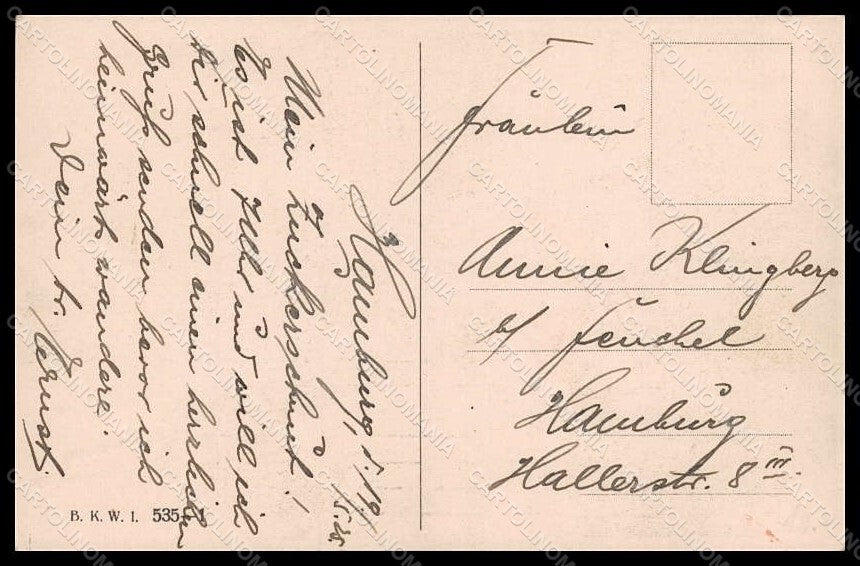 Hamburg, d. 19/5.25.
Mein Zuckerschnut!
Es ist 7 Uhr und will ich
dir schnell einen herzlichen
Gruß senden bevor ich
heimwärts wandere.
Dein tr. Ernst.
Fräulein
Annie Klingberg
b/ Feuchel
Hamburg
Hallerstr. 8 III.
B. K. W. I. 535-1
CARTOLINOMANIA